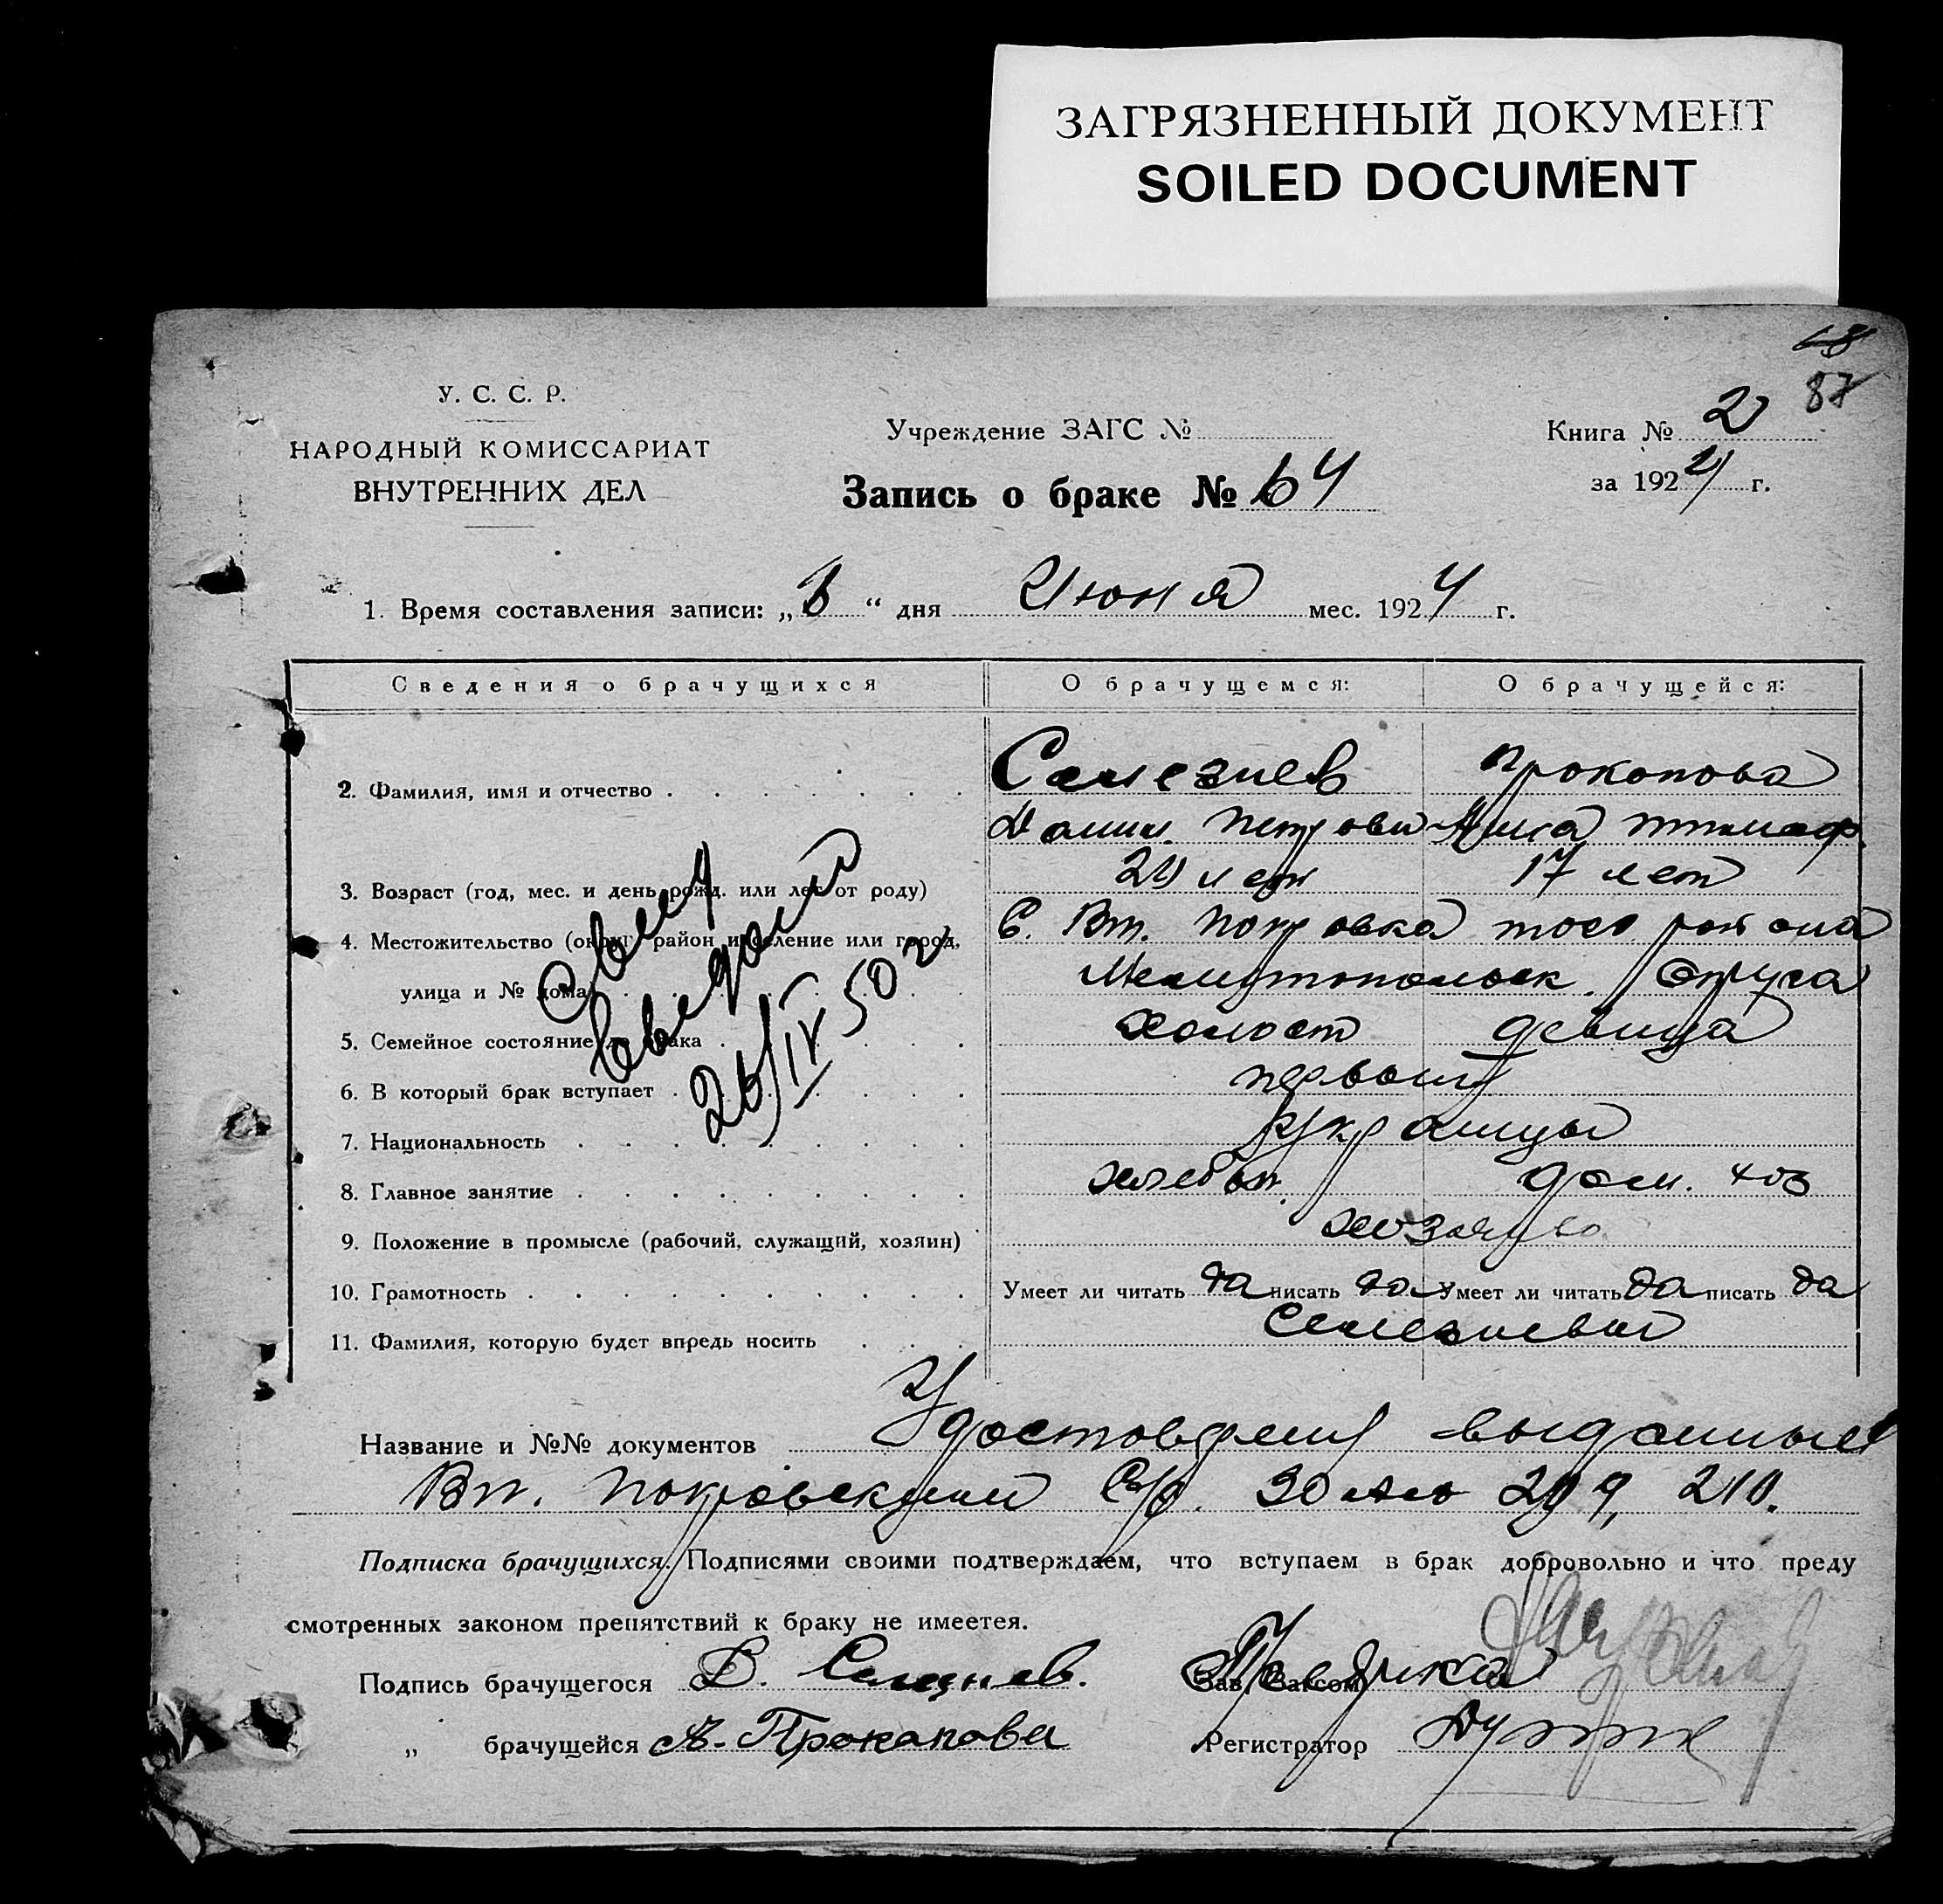 ЗАГРЯЗНЕННЫЙ ДОКУМЕНТ
SOILED DOCUMENT
87
У. С. С. Р.
НАРОДНЫЙ КОМИССАРИАТ
ВНУТРЕННИХ ДЕЛ
Учреждение ЗАГС №
Запись о браке № 64
Книга № 2
за 1924 г.
1. Время составления записи: „ “ дня Июня мес. 1924 г.
Сведения о брачущихся О брачущемся: О брачущейся:
2. Фамилия, имя и отчество Селезнев Прокопова
Петрови Анна
3. Возраст (год, мес. и день рожд. или лет от роду) лет 17 лет
4. Местожительство (округ, район и селение или город, С. Вт. Покровка того района
улица и № дома) Мелитопольск. Округа
5. Семейное состояние до брака холост девица
6. В который брак вступает первый
7. Национальность Украинцы
8. Главное занятие хлебоп. дом. хоз
9. Положение в промысле (рабочий, служащий, хозяин)
10. Грамотность Умеет ли читать да писать да Умеет ли читать да писать да
11. Фамилия, которую будет впредь носить Селезневы
26/IV 50 г.
Название и №№ документов Удостоверен выданные
Вт. Покровским С/с. 209, 210.
Подписка брачущихся. Подписями своими подтверждаем, что вступаем в брак добровольно и что преду
смотренных законом препятствий к браку не имеетея.
Подпись брачущегося Зав. Загсом
„ брачущейся А. Прокапова Регистратор